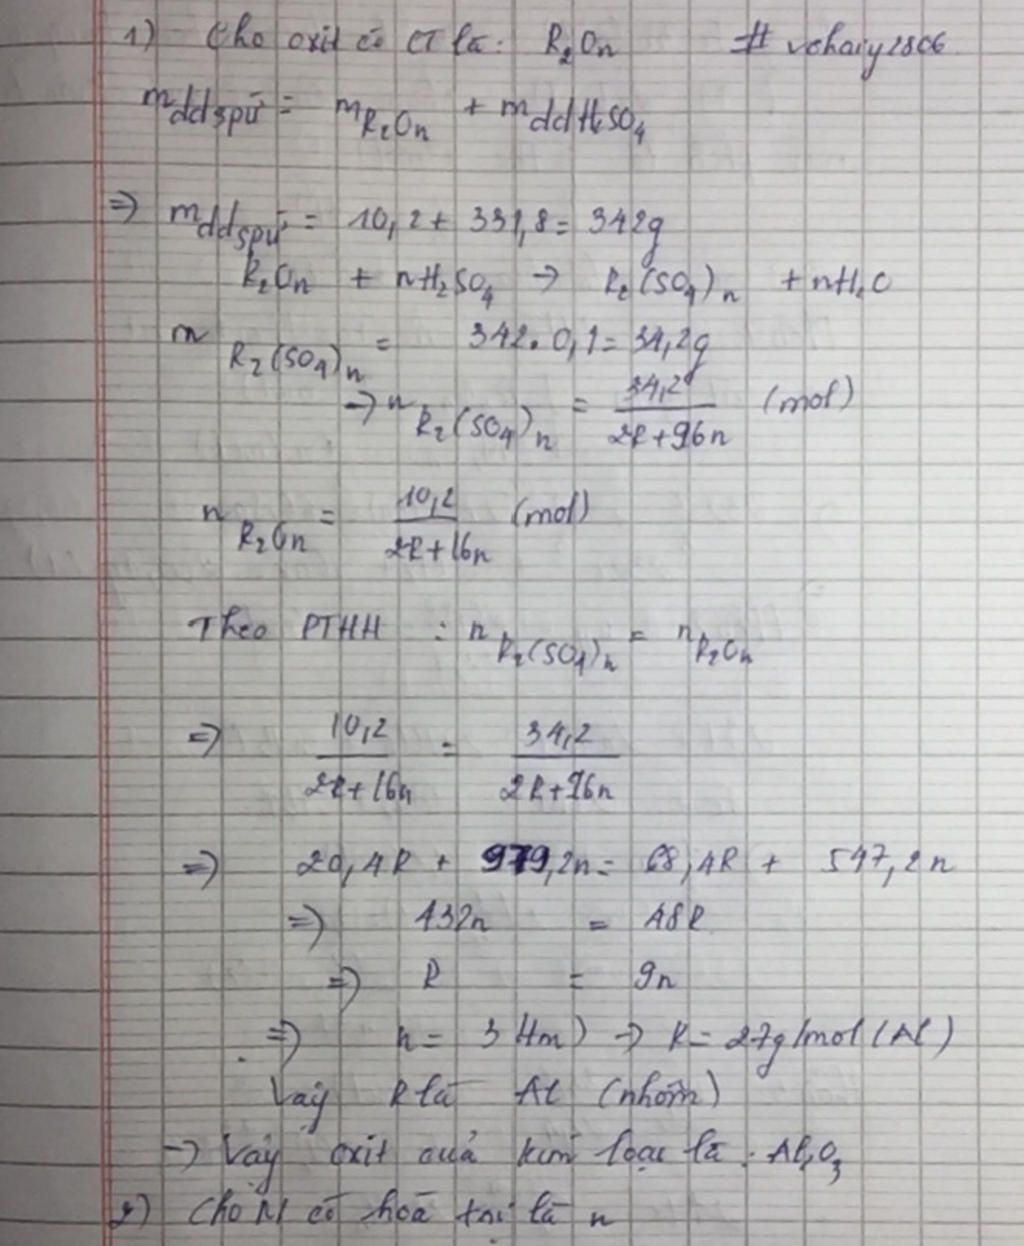 1) Cho oxit có CT là: R₂On # vchaiy2806
mddspứ = mR₂On + mddH₂SO₄
=> mddspứ = 10,2 + 331,8 = 342g
R₂On + nH₂SO₄ → R₂(SO₄)n + nH₂O
mR₂(SO₄)n = 342.0,1 = 34,2g
→ nR₂(SO₄)n = 34,2/2R+96n (mol)
nR₂On = 10,2/2R+16n (mol)
Theo PTHH : nR₂(SO₄)n = nR₂On
=> 10,2/2R+16n = 34,2/2R+96n
=> 20,4R + 979,2n = 68,4R + 547,2n
=> 432n = 48R
=> R = 9n
=> n = 3 (tm) → R = 27g/mol (Al)
Vậy R là Al (nhôm)
→ Vậy oxit của kim loại là : Al₂O₃
2) Cho M có hoá trị là n